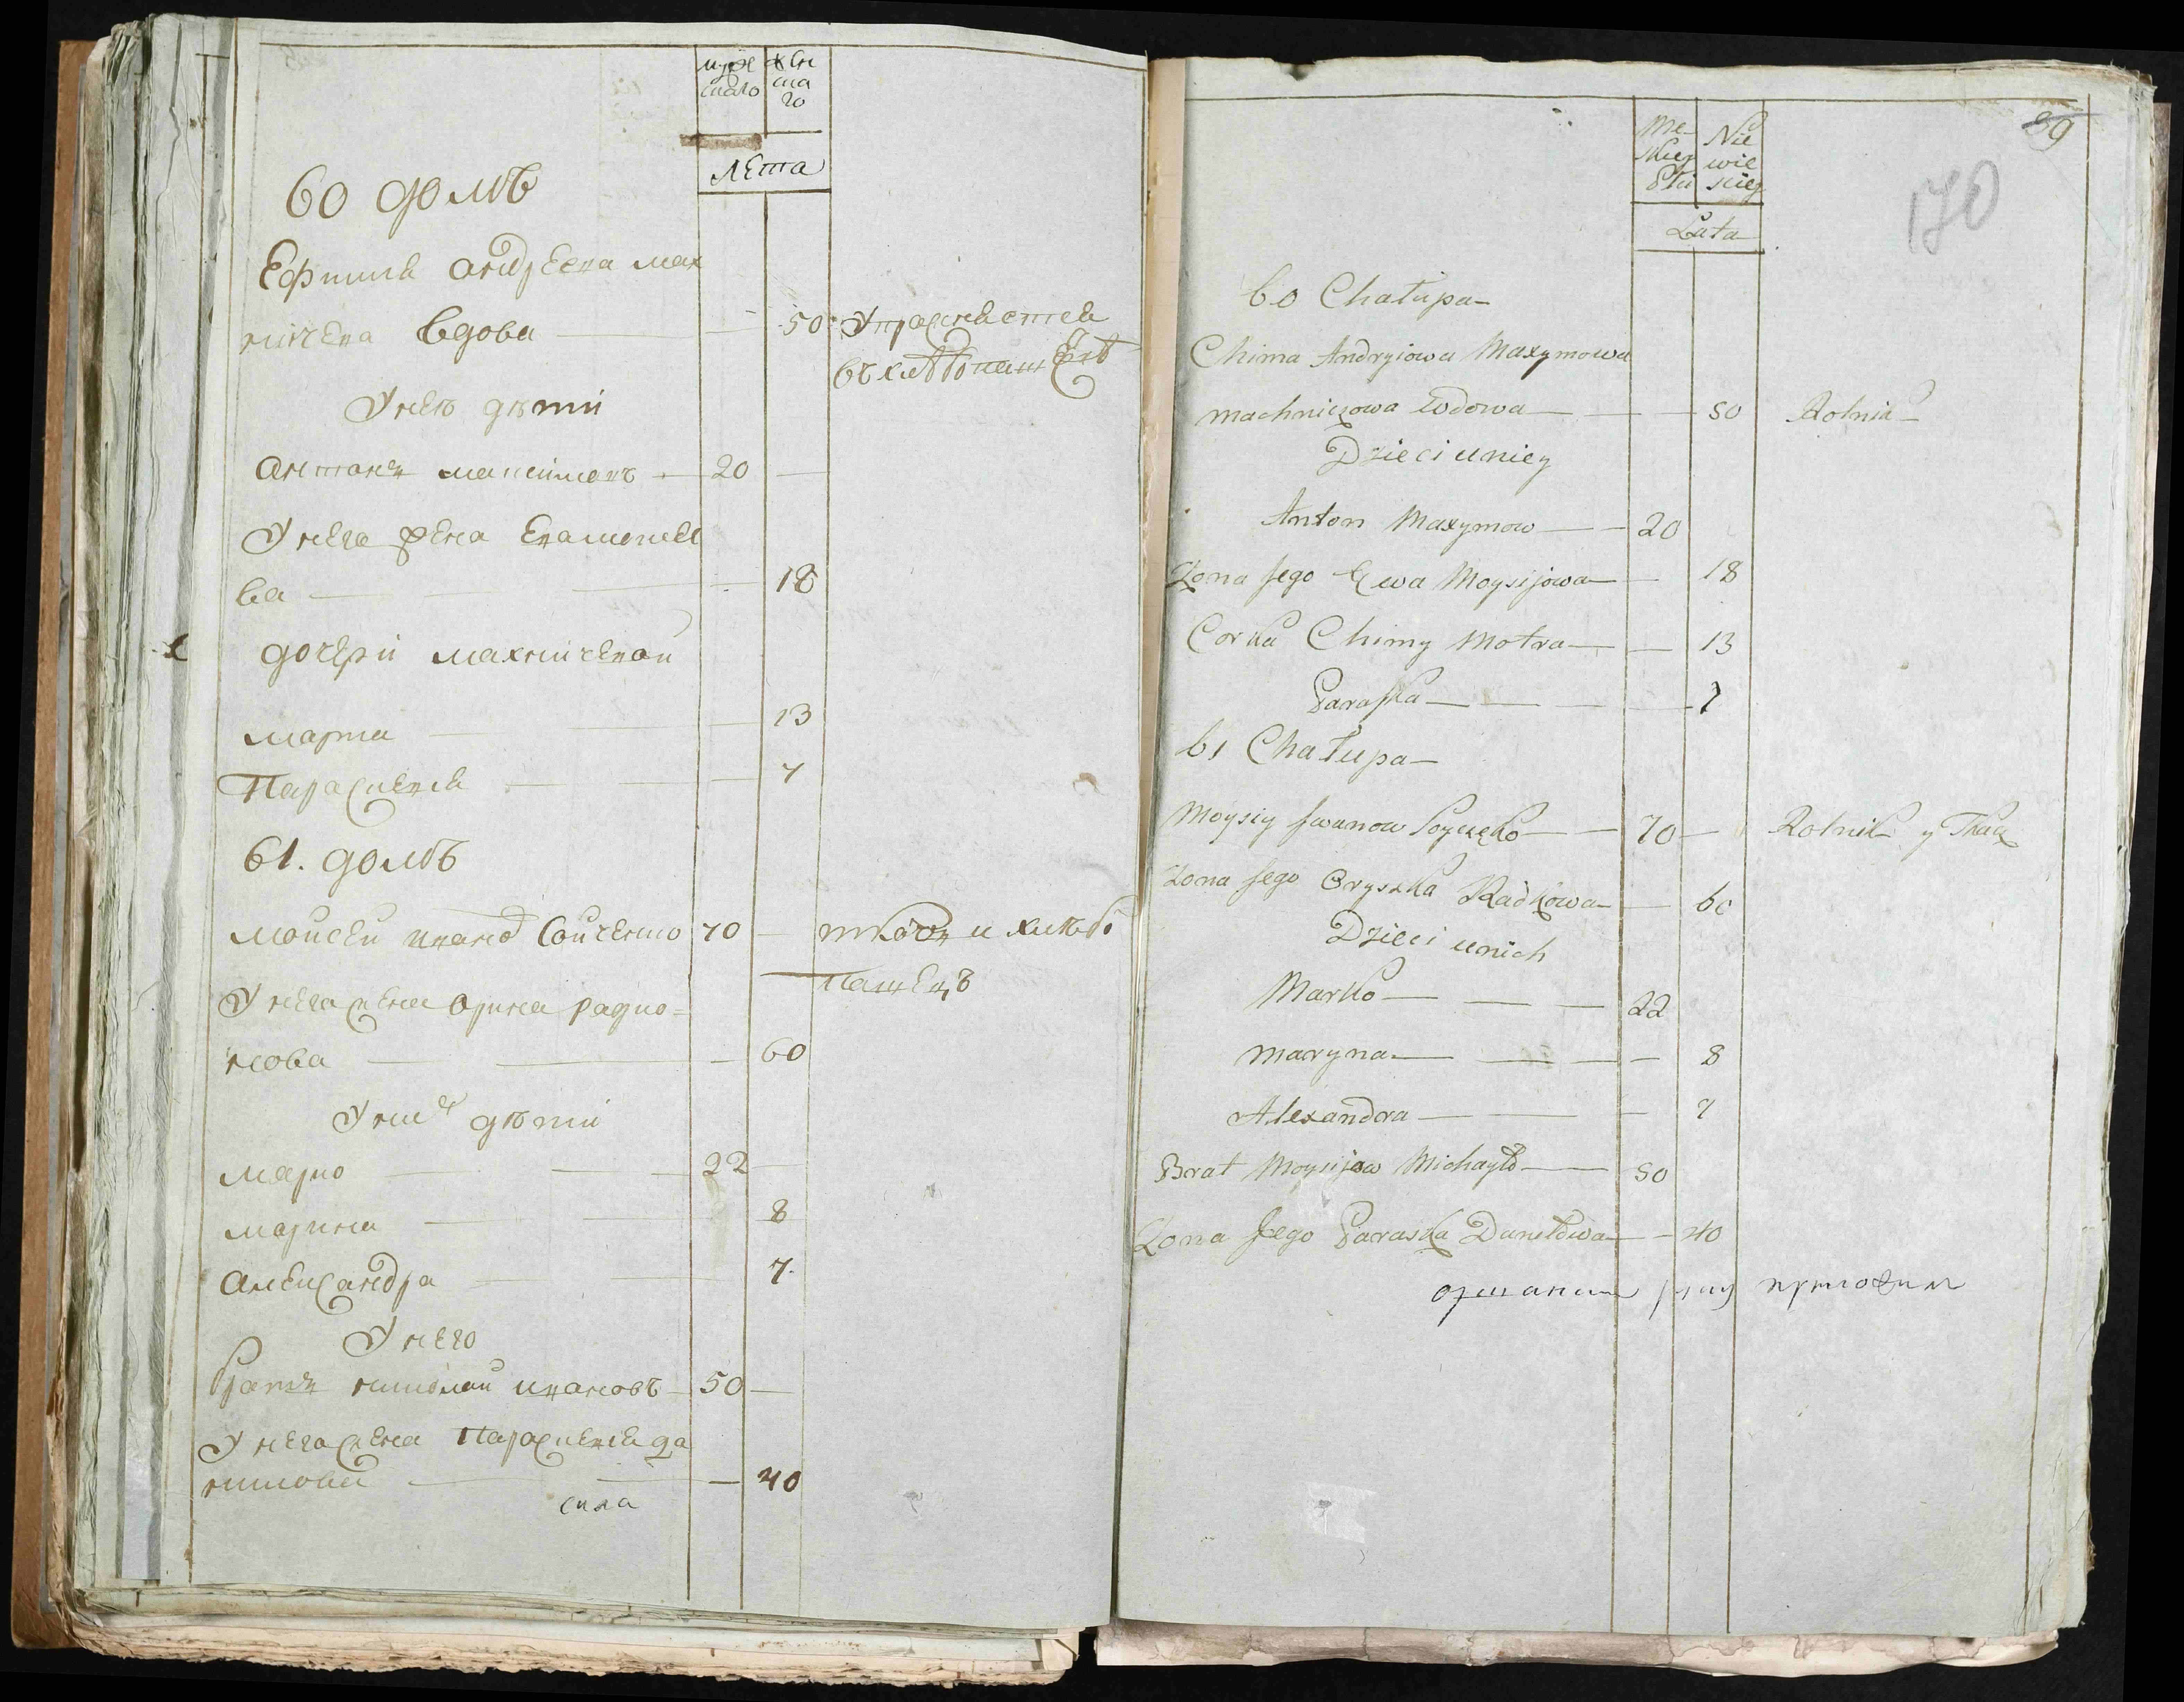 муж женска
скаго го
Лета
60 домъ
Ефимиа андреева мах
ничева вдова — 50 Упражнаетса
въ хлебопаш
У неѣ дѣти
антонъ максимовъ — 20 —
У него жена Ева моисее
ва — 18
дочери махничевой
марта — 13
Парасковиа — 7
61. домъ
моисей иванов Сойченко 70 — ткачъ и хлебо
пашецъ
У него жена орина радио=
нова — 60
У них дѣти
марко — 22 —
марина — 8
александра — 7.
У него
братъ николай ивановъ — 50 —
У него жена Парасковиа да
нилова — 40
сила
89
170
Mę Nie
skiey wie
Płci skiey
Lata
60 Chałupa
Chima Andryiowa Maxymowa
machniczowa wdowa — 50 Rolnik
Dzieci u niey
Anton Maxymow — 20
Zona Jego Ewa Moysijowa — 18
Corka Chimy Motra — 13
Paraska — 7
61 Chałupa
Moysiy Jwanow Soyczęko — 70 — Rolnik y Tkacz
Zona Jego Oryszka Radkowa — 60
Dzieci u nich
Marko — 22
Maryna — 8
Alexandra — 7
Brat Moysijow Michayło — 50
Zona Jego Paraska Daniłowa — 40
руку приложил